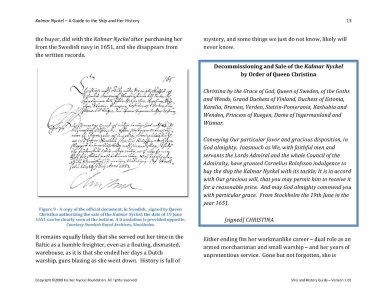 Kalmar Nyckel – A Guide to the Ship and Her History
13
the buyer, did with the Kalmar Nyckel after purchasing her
from the Swedish navy in 1651, and she disappears from
the written records.
Figure 9 - A copy of the official document, in Swedish, signed by Queen
Christina authorizing the sale of the Kalmar Nyckel; the date of 19 June
1651 can be clearly seen at the bottom. A translation is provided opposite.
Courtesy Swedish Royal Archives, Stockholm.
It remains equally likely that she served out her time in the
Baltic as a humble freighter, even as a floating, dismasted,
warehouse, as it is that she ended her days a Dutch
warship, guns blazing as she went down. History is full of
mystery, and some things we just do not know, likely will
never know.
Decommissioning and Sale of the Kalmar Nyckel
by Order of Queen Christina
Christina by the Grace of God, Queen of Sweden, of the Goths
and Wends, Grand Duchess of Finland, Duchess of Estonia,
Karelia, Bremen, Verden, Stettin-Pomerania, Kashubia and
Wenden, Princess of Ruegen, Dame of Ingermanland and
Wismar.
Conveying Our particular favor and gracious disposition, in
God almighty. Inasmuch as We, with faithful men and
servants the Lords Admiral and the whole Council of the
Admiralty, have granted Cornelius Rolofsson indulgence to
buy the ship Kalmar Nyckel with its tackle; it is in accord
with Our gracious will, that you may permit him to receive it
for a reasonable price. And may God almighty commend you
with particular grace. From Stockholm the 19th June is the
year 1651.
[signed] CHRISTINA
Either ending fits her workmanlike career – dual role as an
armed merchantman and small warship – and her years of
unpretentious service. Gone but not forgotten, she is
Copyright ©2009 Kalmar Nyckel Foundation. All rights reserved.
Ship and History Guide – Version 1.01